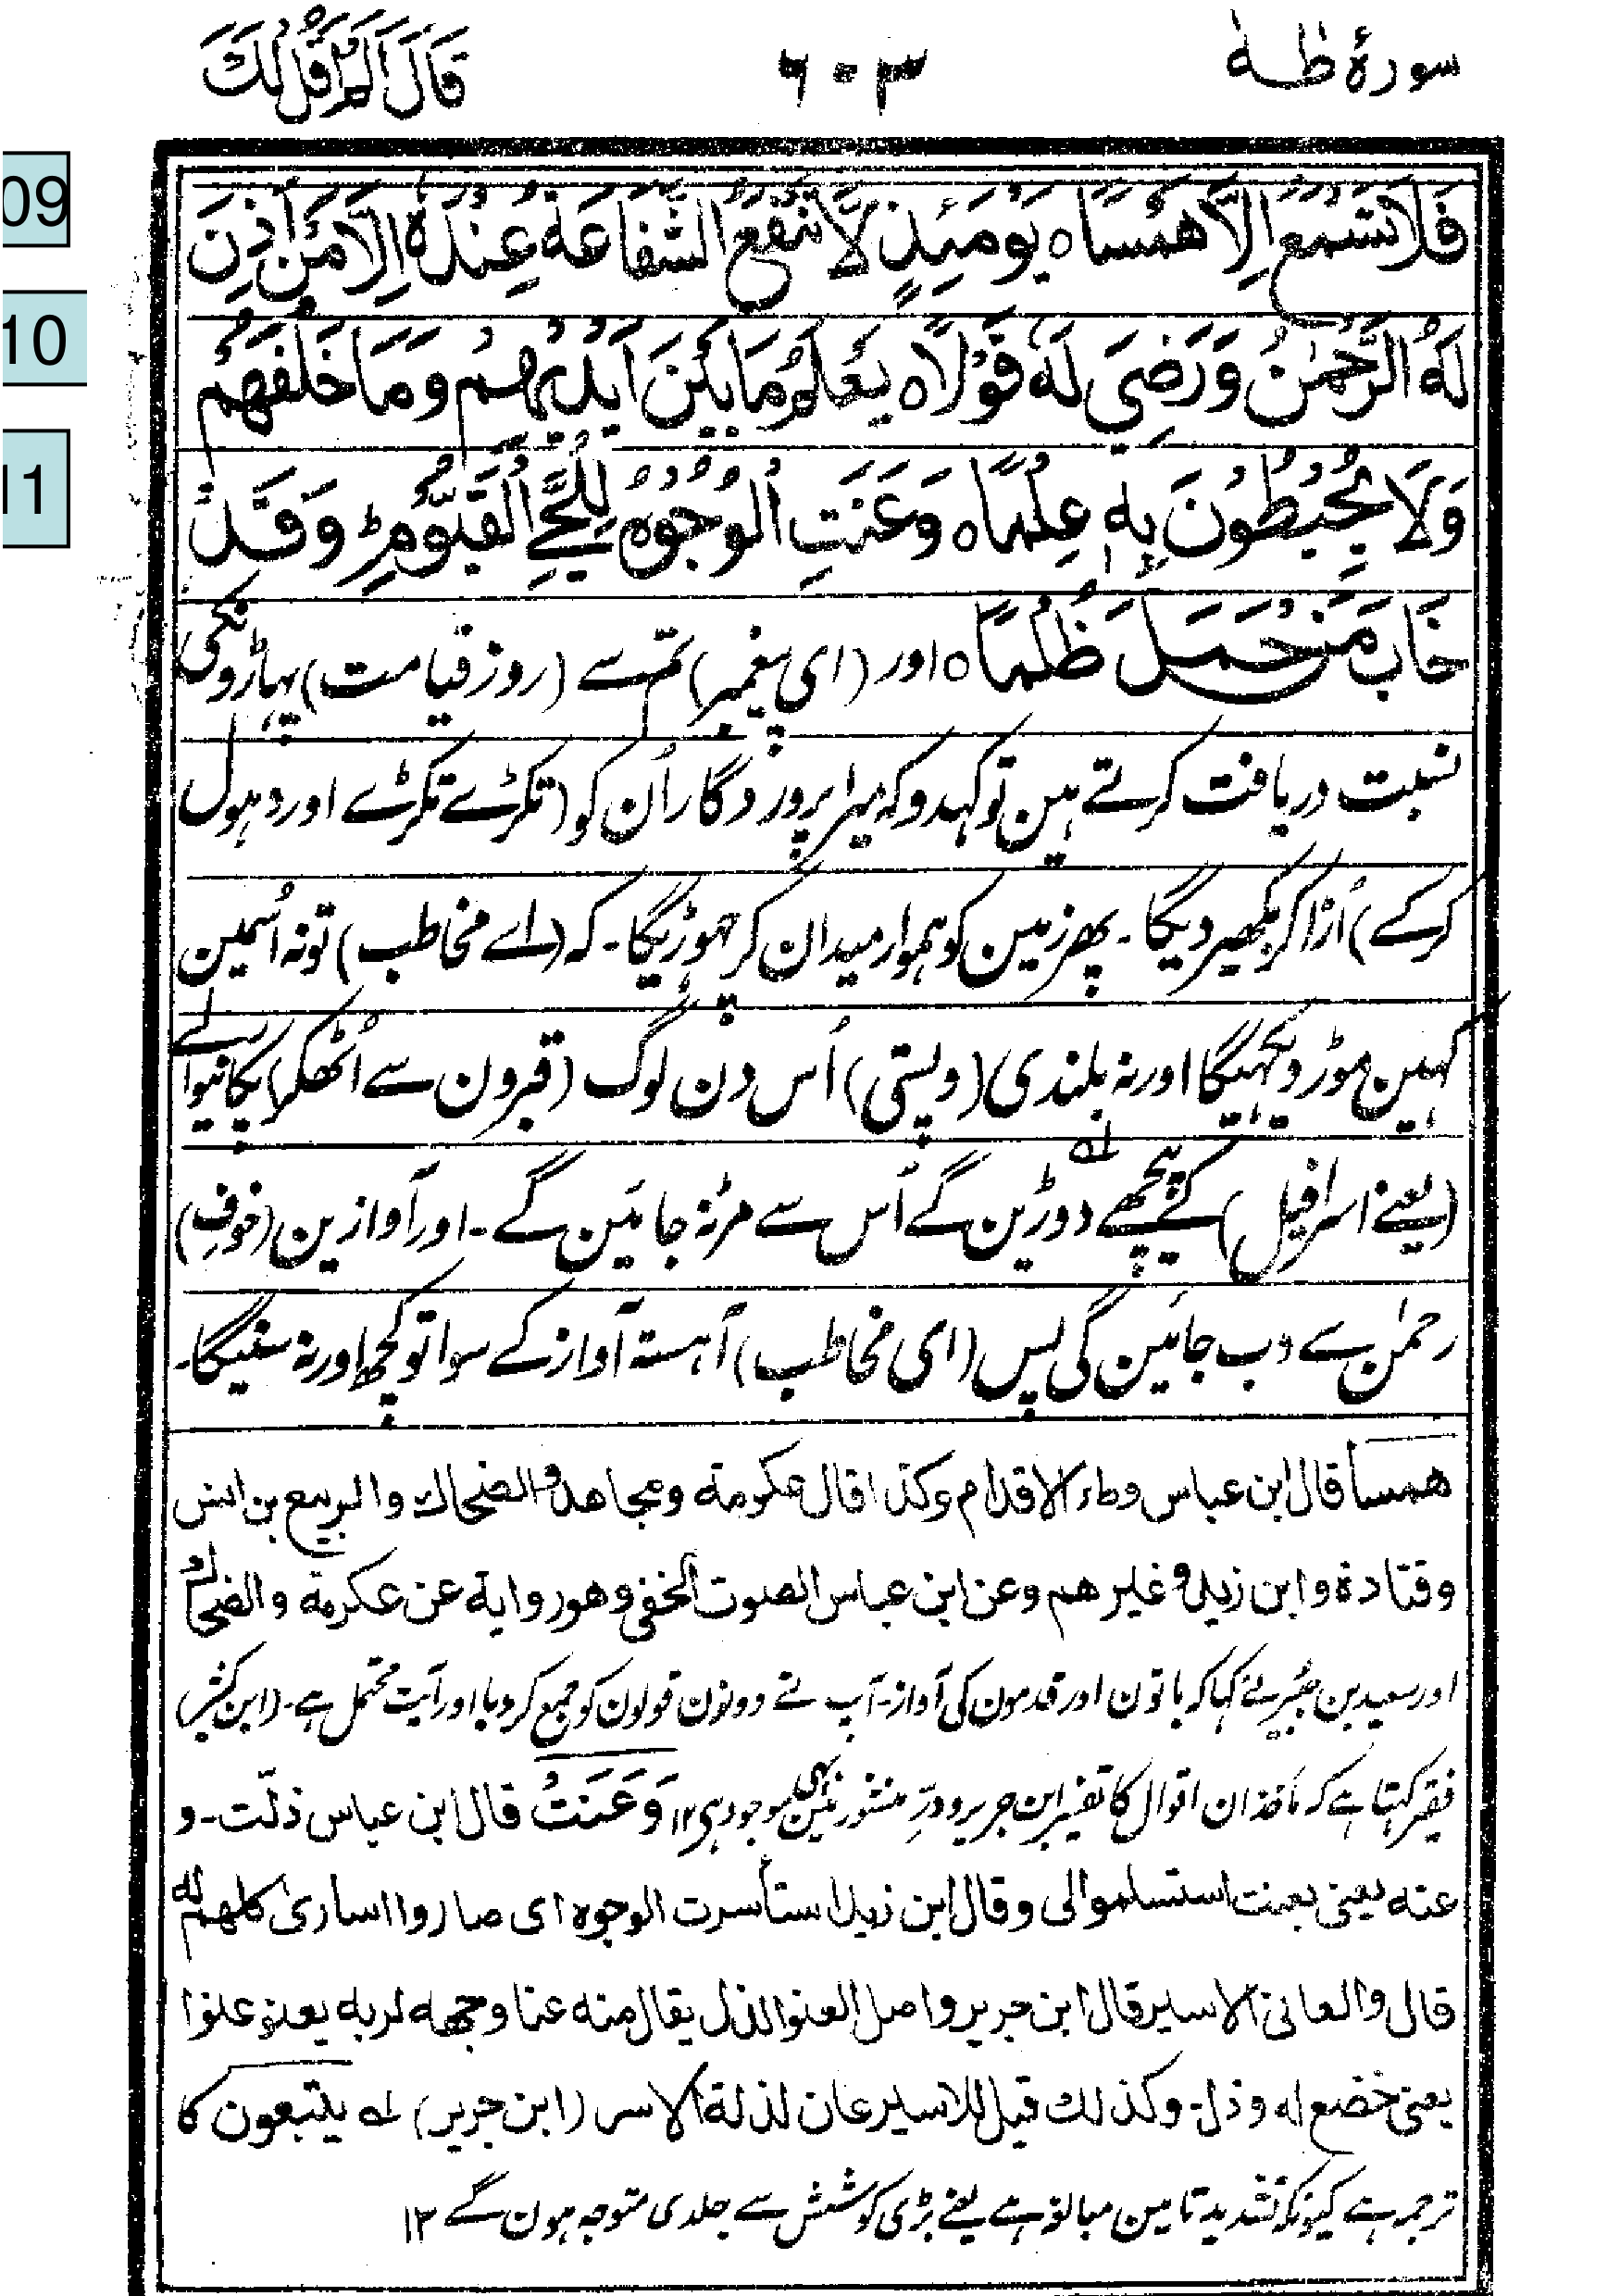 سورۂ طٰہٰ
۶۰۳
قَالَ اَلَمْ اَقُلْ لَكَ
09
10
11
فَلَا تَسْمَعُ اِلَّا هَمْسًا ہ يَوْمَئِذٍ لَّا تَنْفَعُ الشَّفَاعَةُ عِنْدَهٗ اِلَّا مَنْ اَذِنَ
لَهُ الرَّحْمٰنُ وَرَضِيَ لَهٗ قَوْلًا ہ يَعْلَمُ مَا بَيْنَ اَيْدِيْهِمْ وَمَا خَلْفَهُمْ
وَلَا يُحِيْطُوْنَ بِهٖ عِلْمًا ہ وَعَنَتِ الْوُجُوْهُ لِلْحَيِّ الْقَيُّوْمِ ط وَقَدْ
خَابَ مَنْ حَمَلَ ظُلْمًا ہ اور (ای پیغمبر) تم سے (روز قیامت) پہاڑونکی
نسبت دریافت کرتے ہین تو کہدو کہ میرا پروردگار اُن کو (ٹکڑے ٹکڑے اور دہول
کرکے) اُڑا کر بکھیر دیگا ۔ پھر زمین کو ہموار میدان کر چھوڑیگا ۔ کہ (اے مخاطب) تو نہ اُسمین
کہین موڑ دیکہیگا اور نہ بلندی (و پستی) اُس دن لوگ (قبرون سے اُٹھکر) پکانیوالے
(یعنے اسرافیل) کے پیچھے لہ دوڑین گے اُس سے مڑ نہ جائین گے ۔ اور آوازین (خوفِ)
رحمٰن سے دب جائین گی پس (ای مخاطب) آہستہ آواز کے سوا تو کچھ اور نہ سنیگا ۔
همسا قال ابن عباس وطاء الاقدام وكذا قال عكرمة ومجاهد والضحاك والربيع بن انس
وقتادة وابن زيد وغيرهم وعن ابن عباس الصوت الخفي وهو رواية عن عكرمة والضحاك
اور سعید بن جُبیر نے کہا کہ باتون اور قدمون کی آواز ۔ آپ نے دونون قولون کو جمع کر دیا اور آیت محتمل ہے ۔ (ابن کثیر)
فقیر کہتا ہے کہ ماخذ ان اقوال کا تفسیر ابن جریر و دُرِّ منثور مین بھی موجود ہی ۱۲ وَعَنَتْ قال ابن عباس ذلّت ۔ و
عنه يعنى بعنت استسلموا لى وقال ابن زيد استأسرت الوجوه اى صاروا اسارى كلهم له
قال والعانى الاسير قال ابن جرير واصل العنو الذل يقال منه عنا وجهه لربه يعنو عنوا
يعنى خضع له وذل ۔ وكذلك قيل للاسير عان لذلة الاسر (ابن جرير) لہ يتبعون کا
ترجمہ ہے کیونکہ تشدید تا مین مبالغہ ہے یعنے بڑی کوشش سے جلدی متوجہ ہون گے ۱۲